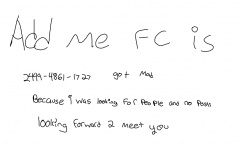 Add me FC is
2499-4861-1727 got Mad
Because i was looking for people and no
looking forward 2 meet you